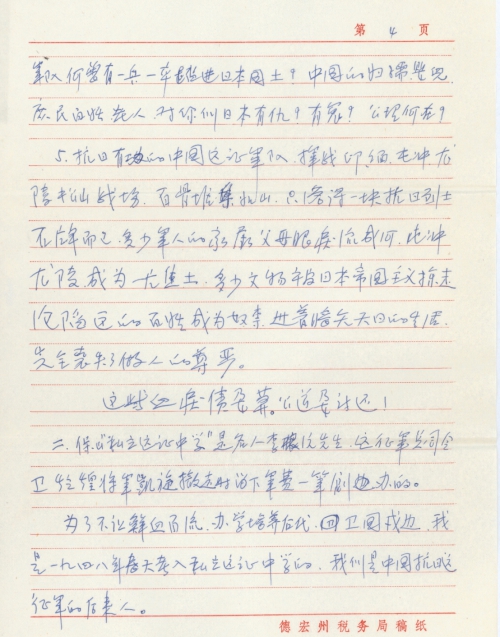 第 4 页
军队何曾有一兵一车踏进日本国土？中国的妇孺
庶民百姓 人，对你们日本有仇？有冤？公理何在？
5. 抗日有功的中国远征军队，挥戈印缅，屯冲龙
陵松山战场，白骨堆集如山，只落得一块抗日烈士
石碑而已，多少军人的家属父母眼泪流成河，屯冲
龙陵成为一片焦土，多少文物被日本帝国主义掠走
沦陷区的百姓成为奴隶，过着暗无天日的生活，
完全丧失了做人的尊严。
这些血泪债要算。公道要讨还！
二、保山"私立远征中学"是名人李根沅先生，远征军总司令
卫竝煌将军凯旋撤走时留下军费一笔创办的。
为了不让鲜血白流，办学培养后代，回卫国戍边，我
是一九四八年春天考入私立远征中学的，我们是中国抗日远
征军的后来人。
德宏州税务局稿纸